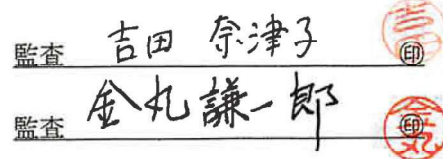 監査 吉田 奈津子 ㊞
監査 金丸謙一郎 ㊞